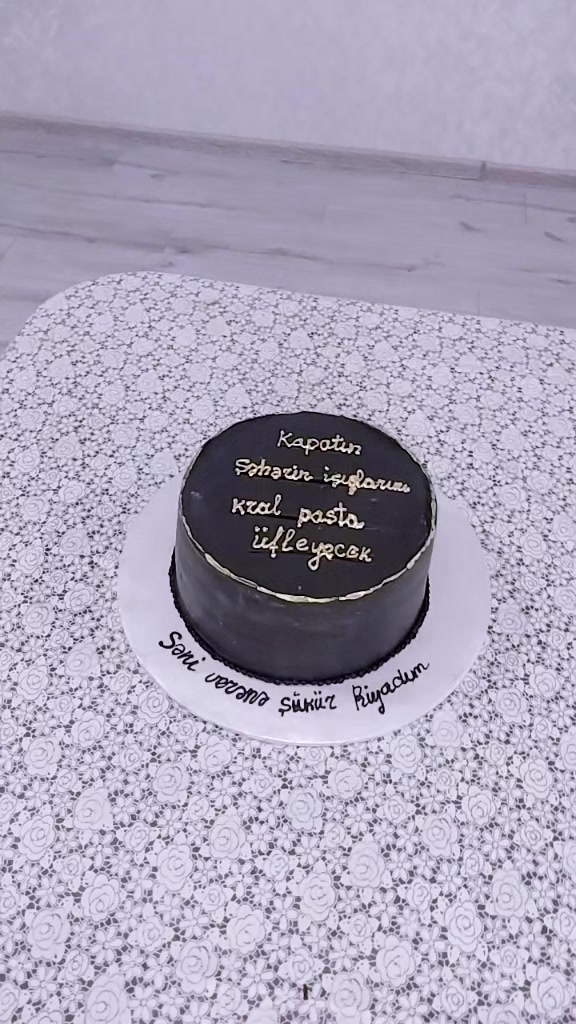 Kapatın
Şəhərin işıqlarını
kral pasta
üfleyecek
Səni verənə şükür Riyadım